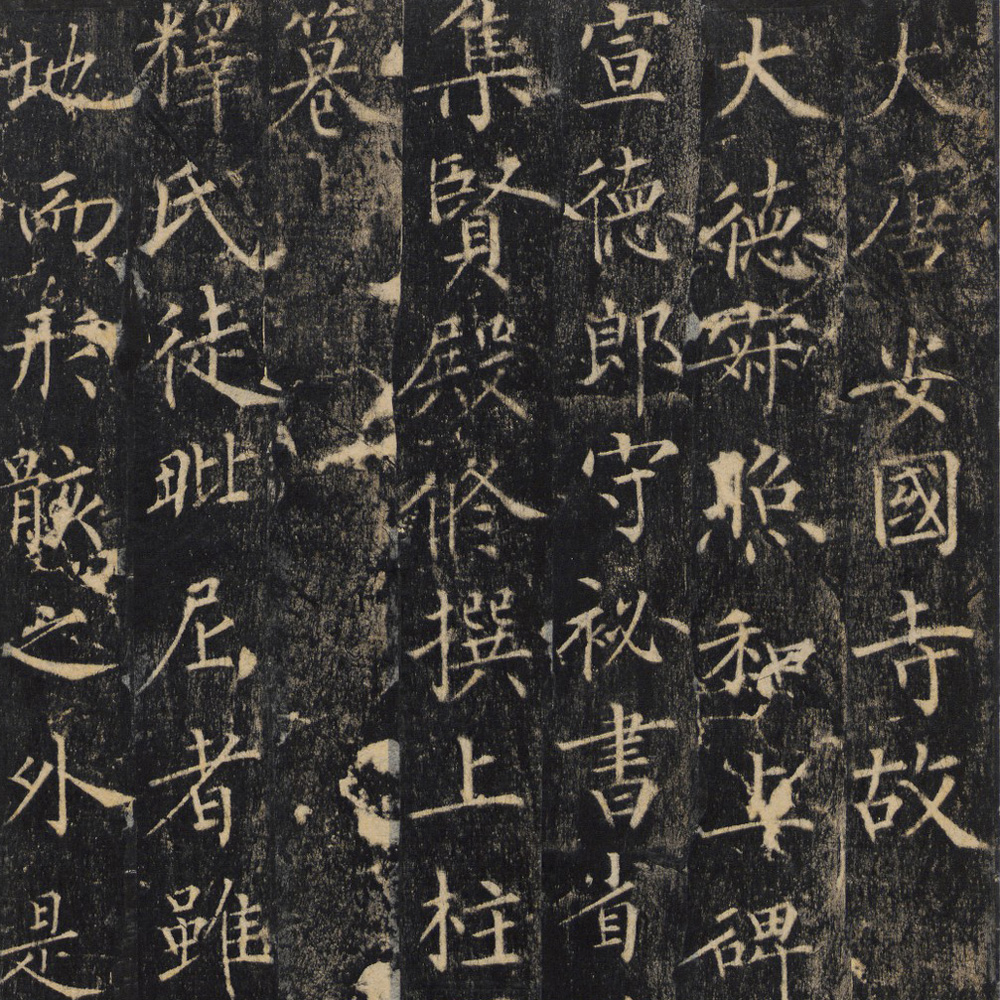 大唐安國寺故
大德照和上碑
宣德郎守祕書省
集賢殿修撰上柱
釋氏徒毗尼者雖
地而形骸之外是